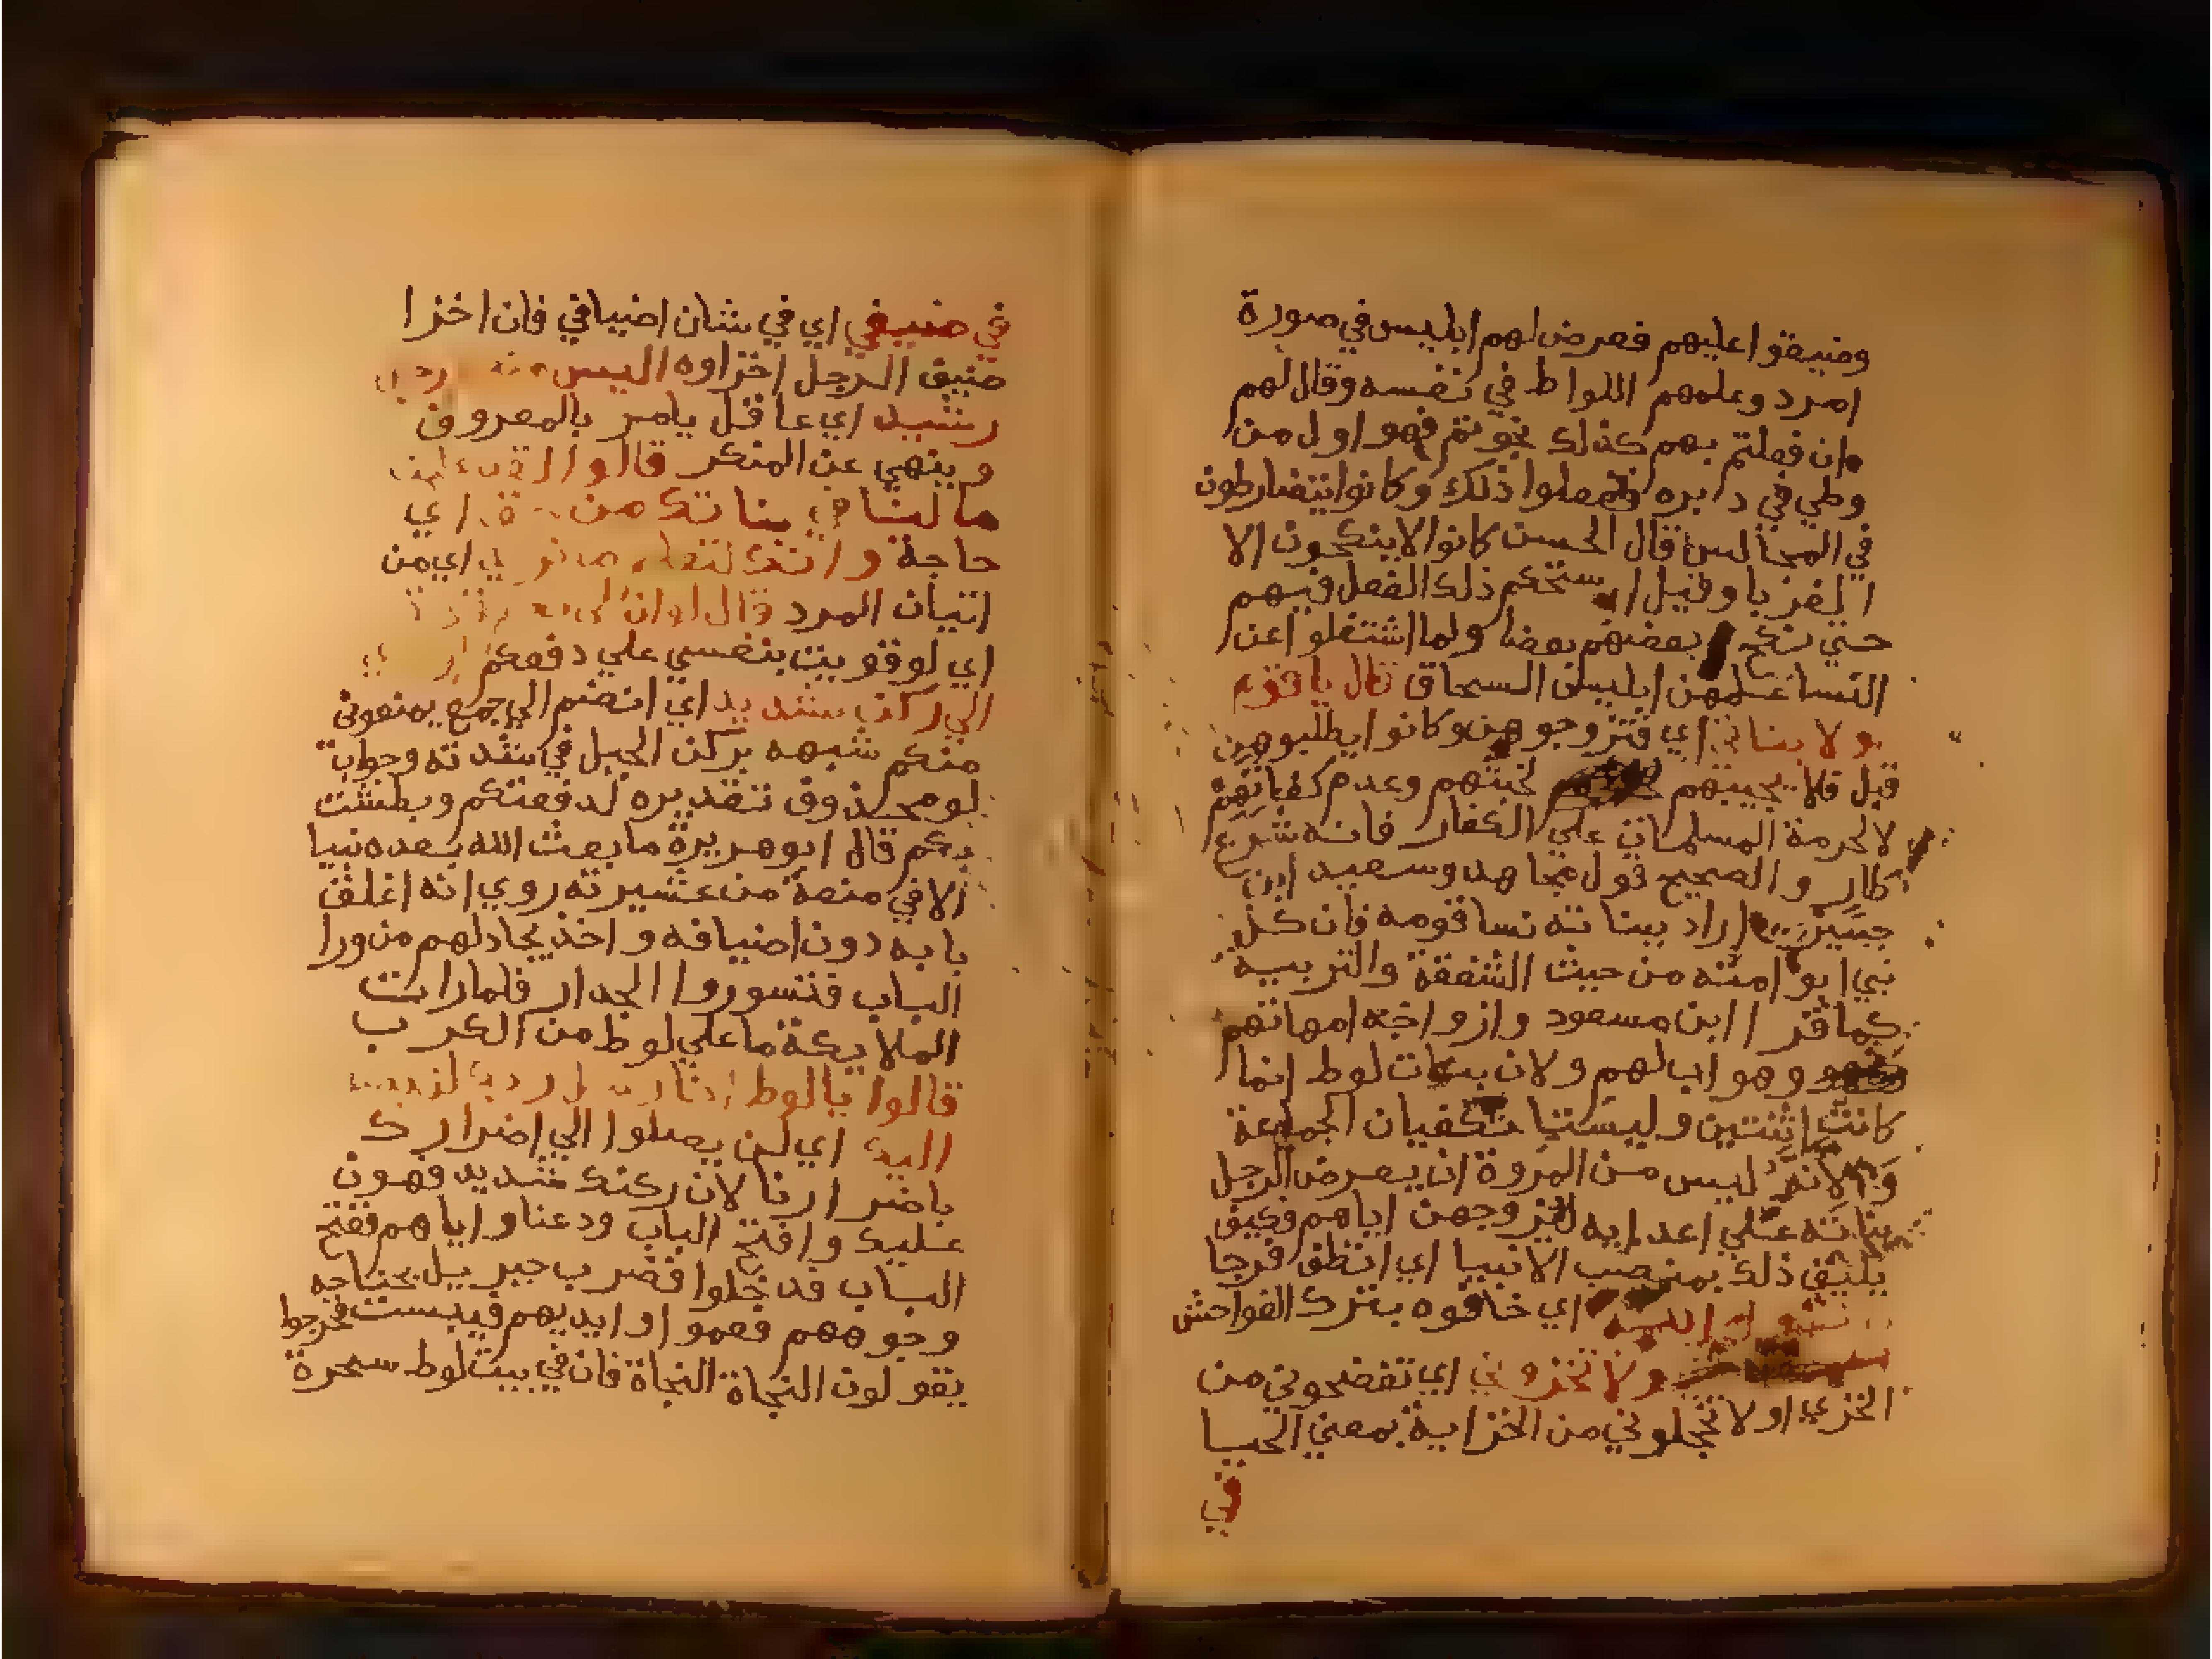 وضيقوا عليهم فعرض لهم ابليس في صورة
امرد وعلمهم اللواط في نفسه وقال لهم
ان فعلتم بهم كذلك نجوتم فهو اول من
وطي في دابره ففعلوا ذلك وكانوا يتضارطون
في المجالس قال الحسن كانوا لا ينكحون الا
الغربا وقيل استحكم ذلك الفعل فيهم
حتي نكح بعضهم بعضا ولما اشتغلوا عن
النسا علمهن ابليس السحاق قال يا قوم
هولا بناتي اي فتزوجوهن وكانوا يطلبوهن
قبل فلا يجيبهم لخبثهم وعدم كفاتهم
لا لحرمة المسلمات علي الكفار فانه شرع
طار والصحيح قول مجاهد وسعيد ابن
جبير اراد ببناته نسا قومه فان كل
نبي ابو امته من حيث الشفقة والتربيه
كما قرا ابن مسعود وازواجه امهاتهم
وهو اب لهم ولان بنات لوط انما
كانت اثنتين وليستا تكفيان الجماعة
ولانه ليس من المروة ان يعرض الرجل
بناته علي اعدايه لتزوجهن اياهم فكيف
يليق ذلك بمنصب الانبيا اي انظف فرجا
الله اي خافوه بترك الفواحش
ولا تخزوني اي تفضحوني من
الخزي او لا تخجلوني من الخزاية بمعني الحيا
في
في ضيفي اي في شان اضيافي فان اخزا
ضيف الرجل اخزاوه اليس
رشيد اي عاقل يامر بالمعروف
وينهي عن المنكر قالوا لقد علمت
ما لنا في بناتك من اي
حاجة وانك لتعلم اي من
اتيان المرد قال لو ان لي قوة
اي لو قويت بنفسي علي دفعكم
الي ركن شديد اي انضم الي جمع يمنعوني
منكم شبهه بركن الجبل في شدته وجواب
لو محذوف تقديره لدفعتكم وبطشت
بكم قال ابو هريرة ما بعث الله بعده نبيا
الا في منعة من عشيرته روي انه اغلق
بابه دون اضيافه واخذ يجادلهم من ورا
الباب فتسوروا الجدار فلما رات
الملايكة ما علي لوط من الكرب
قالوا يا لوط
اليك اي لن يصلوا الي اضرارك
باضرارنا لان ركنك شديد فهون
عليك وافتح الباب ودعنا واياهم ففتح
الباب فدخلوا فضرب جبريل بجناحه
وجوههم فعموا وايديهم فيبست فخرجوا
يقولون النجاة النجاة فان في بيت لوط سحرة